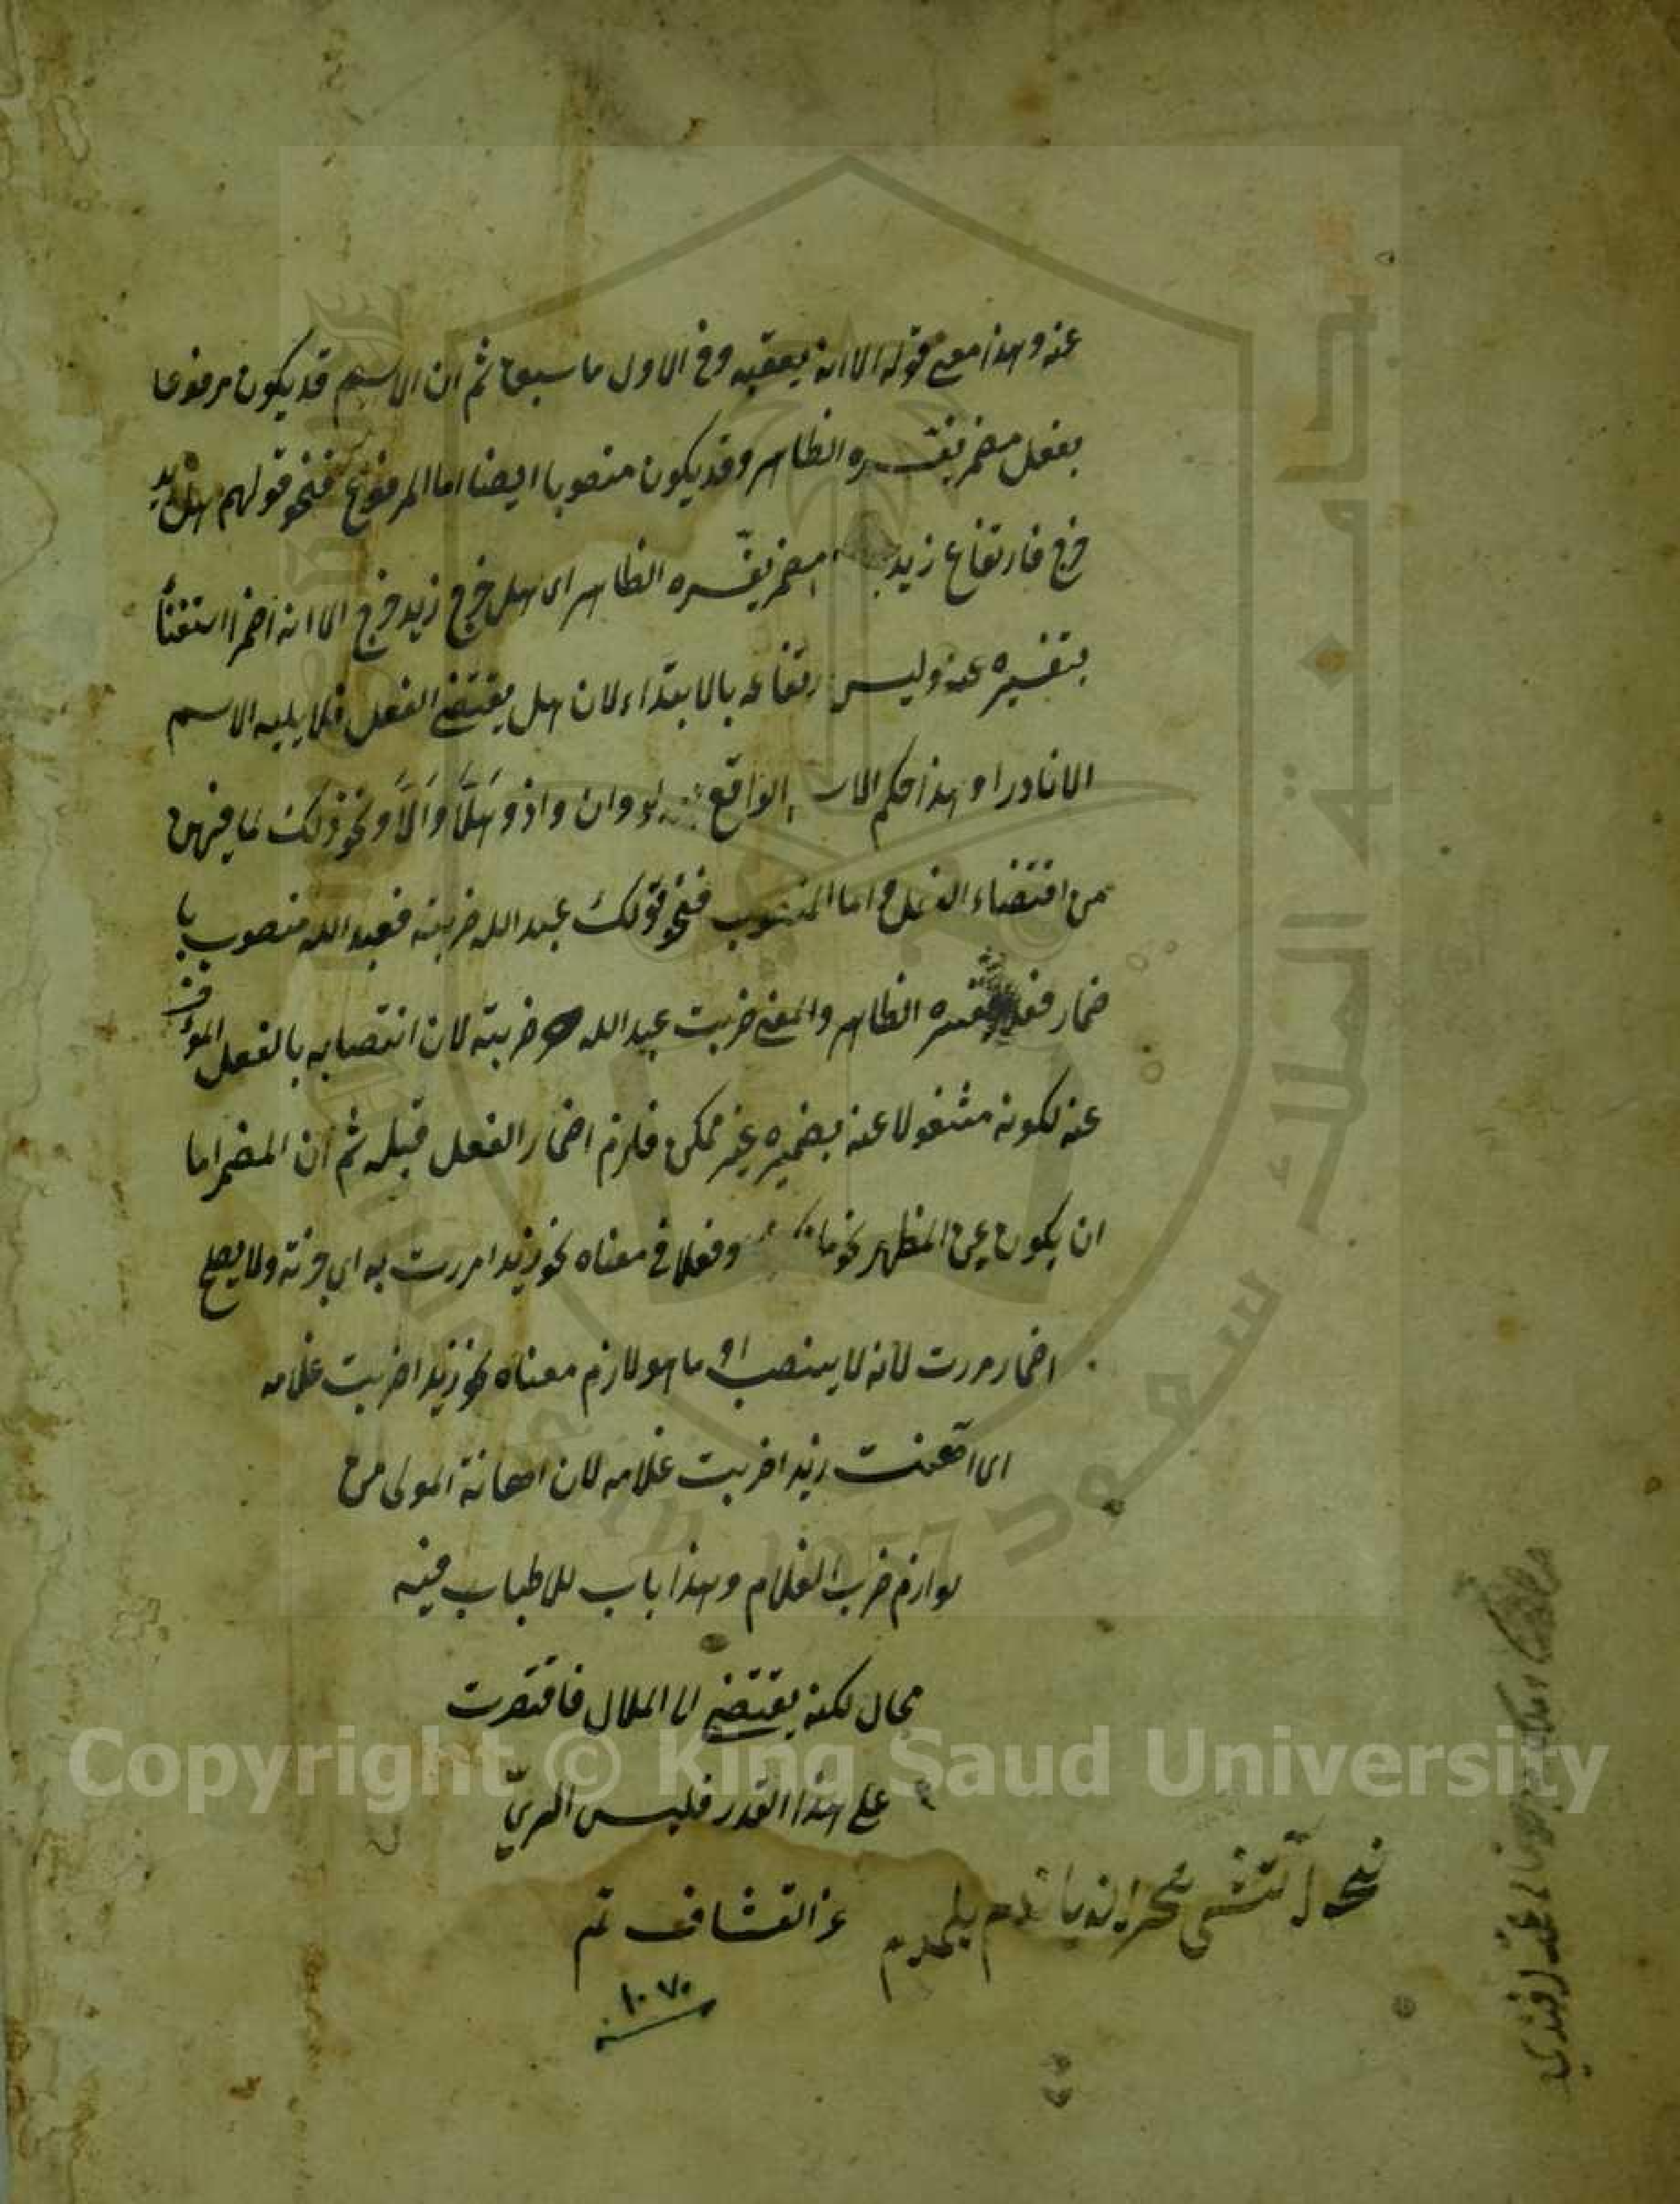 عنه وهذا معنى قوله الا انه يعقبه وفي الاول ما سبق ثم ان الاسم قد يكون مرفوعا
بفعل مضمر يفسره الظاهر وقد يكون منصوبا ايضا اما المرفوع فنحو قولهم هل زيد
خرج فارتفاع زيد مضمر يفسره الظاهر اى هل خرج زيد خرج الا انه اضمر استغناء
بتفسيره عنه وليس ارتفاعه بالابتداء لان هل يقتضى الفعل فلا يليه الاسم
الا نادرا وهذا حكم الاسم الواقع بعد لو وان واذ وهَلَّا وَاَلَّا ونحو ذلك لما فيهن
من اقتضاء الفعل واما المنصوب فنحو قولك عبد الله ضربته فعبد الله منصوب با
ضمار فعل يفسره الظاهر والمعنى ضربت عبد الله ضربته لان انتصابه بالفعل المؤخر
عنه لكونه مشغولا عنه بضميره غير ممكن فلزم اضمار الفعل قبله ثم ان المضمر اما
ان يكون عين المظهر نحو ما وفعلا فى معناه نحو زيدا مررت به اى جزته ولا يصح
اضمار مررت لانه لا ينصب او ما هو لازم معناه نحو زيدا ضربت غلامه
اى اهنت زيدا ضربت غلامه لان اهانة المولى من
لوازم ضرب الغلام وهذا باب للاطناب فيه
مجال لكنه يقتضى الى الملال فاقتصرت
على هذا القدر فليس الرىّ
عن التشاف تم
سنة ١٠٧٠
Copyright © King Saud University
جامعة الملك سعود
1957